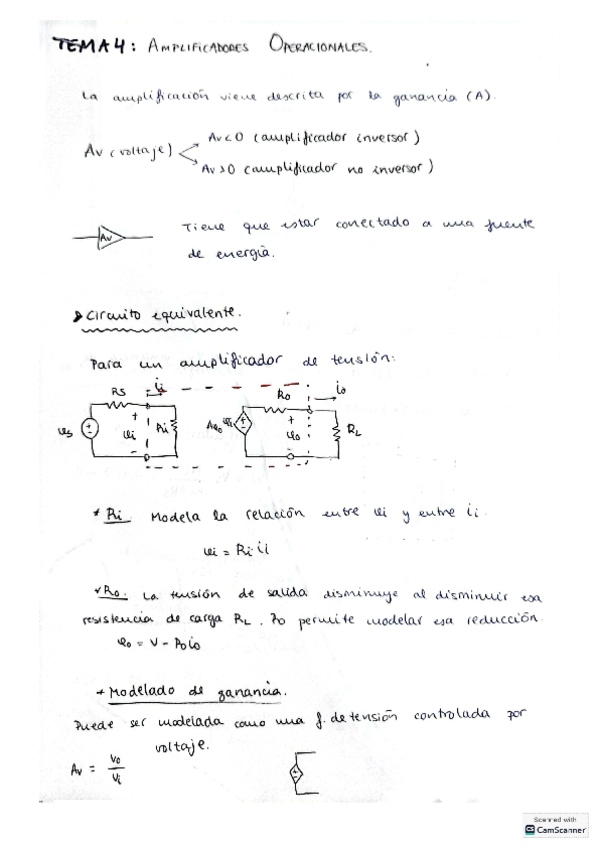 TEMA 4: AMPLIFICADORES OPERACIONALES.
La amplificación viene descrita por la ganancia (A).
Av (voltaje)
Av<0 (amplificador inversor)
Av>0 (amplificador no inversor)
Av
Tiene que estar conectado a una fuente
de energía.
Circuito equivalente.
Para un amplificador de tensión:
Rs ii Ro io
vs + vi - Ri Avo vi + vo - RL
* Ri Modela la relación entre vi y entre ii.
vi = Ri·ii
* Ro. La tensión de salida disminuye al disminuir esa
resistencia de carga RL. Ro permite modelar esa reducción.
vo = V - Roio
+ Modelado de ganancia.
Puede ser modelada como una f. de tensión controlada por
voltaje.
Av = vo/vi
Scanned with
CS CamScanner